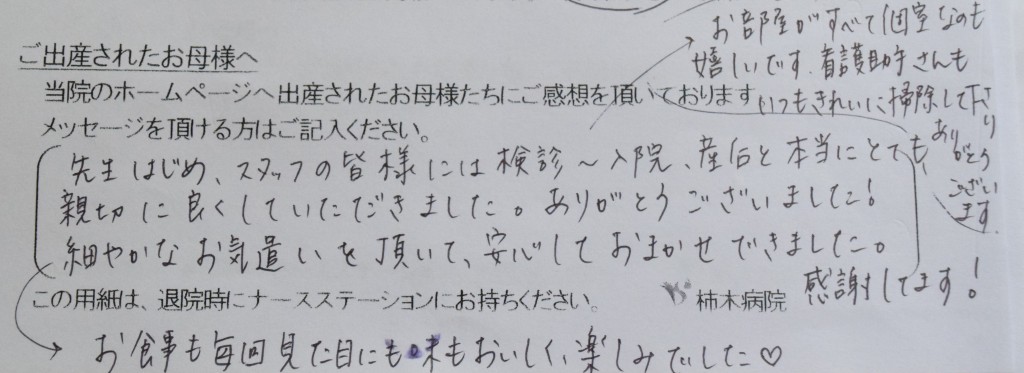 ご出産されたお母様へ
当院のホームページへ出産されたお母様たちにご感想を頂いております
メッセージを頂ける方はご記入ください。
先生はじめ、スタッフの皆様には検診～入院、産后と本当にとても
親切に良くしていただきました。ありがとうございました!
細やかなお気遣いを頂いて、安心しておまかせできました。
感謝してます!
この用紙は、退院時にナースステーションにお持ちください。
柿木病院
お食事も毎回見た目にも味もおいしく、楽しみでした♡
お部屋がすべて個室なのも
嬉しいです。看護助手さんも
いつもきれいに掃除して下さり
ありがとう
ござい
ます